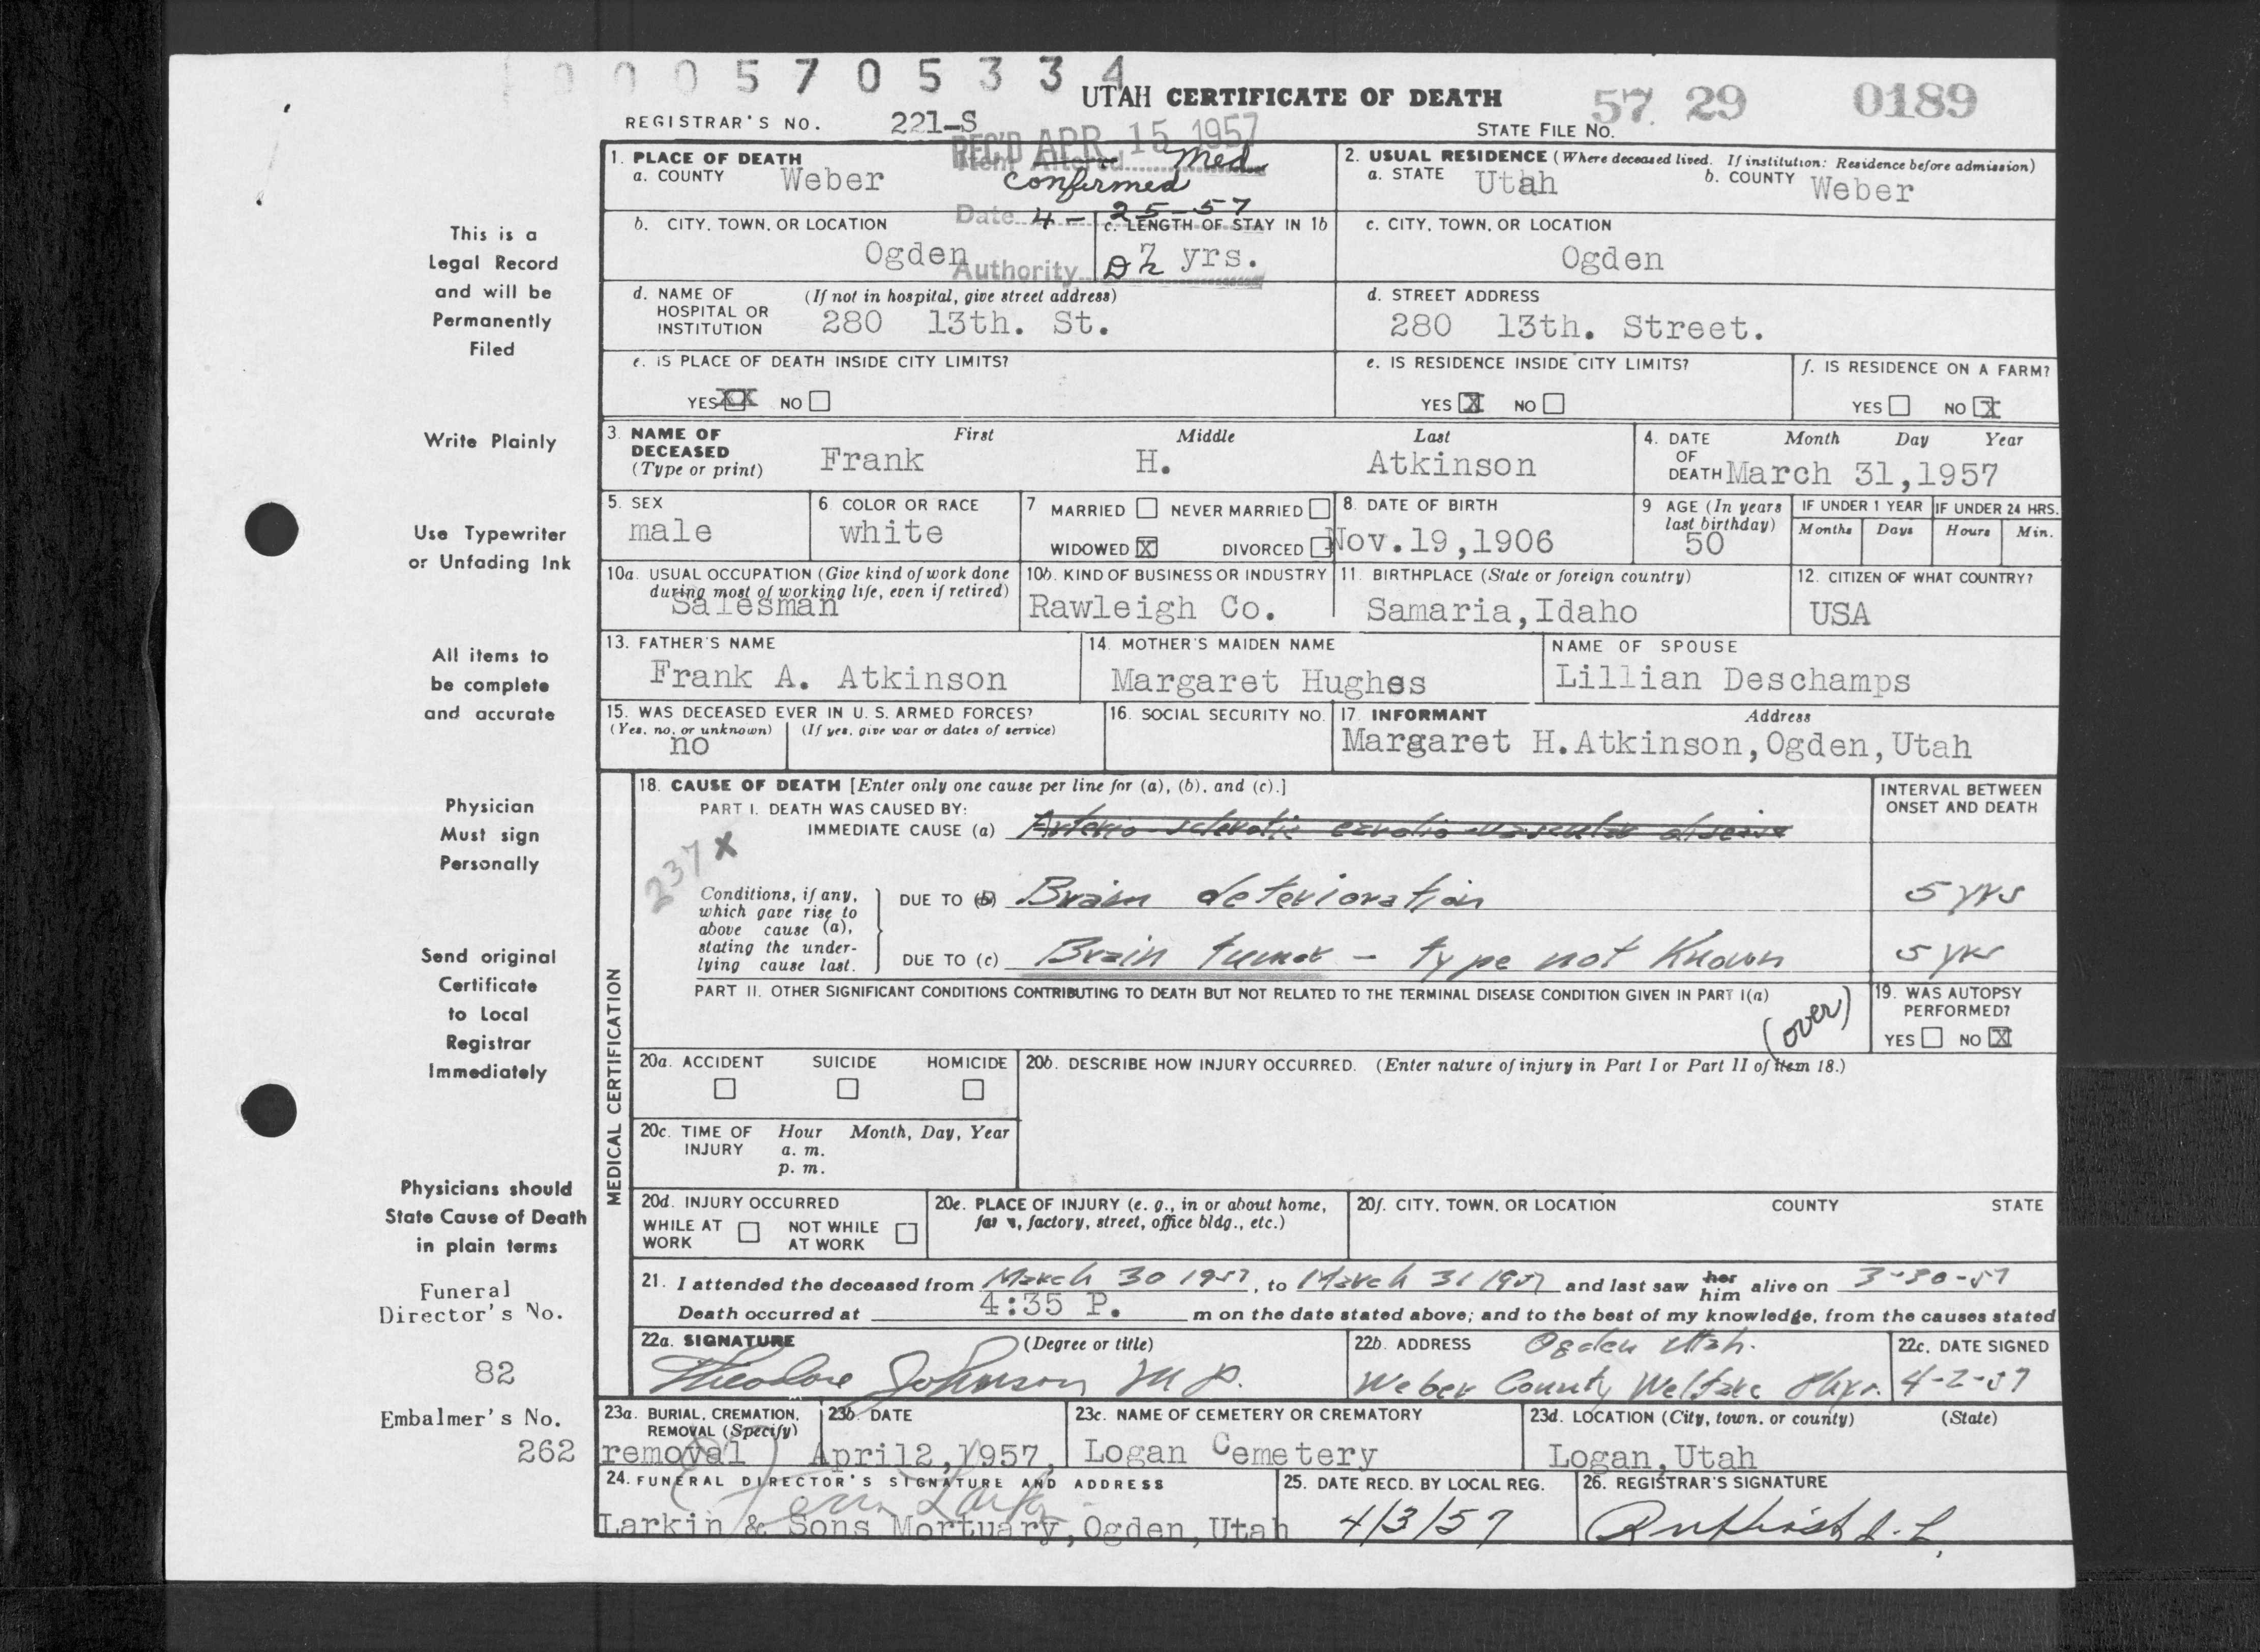 0 0 0 5 7 0 5 3 3 4
UTAH CERTIFICATE OF DEATH
57 29 0189
REGISTRAR'S NO. 221-S
STATE FILE NO.
REC'D APR 15 1957
Item Altered Med
confirmed
Date 4-25-57
Authority
1. PLACE OF DEATH
a. COUNTY Weber
2. USUAL RESIDENCE (Where deceased lived. If institution: Residence before admission)
a. STATE Utah b. COUNTY Weber
b. CITY, TOWN, OR LOCATION Ogden
c. LENGTH OF STAY IN 1b yrs.
c. CITY, TOWN, OR LOCATION Ogden
d. NAME OF HOSPITAL OR INSTITUTION (If not in hospital, give street address)
280 13th. St.
d. STREET ADDRESS
280 13th. Street.
e. IS PLACE OF DEATH INSIDE CITY LIMITS?
YES XX NO
e. IS RESIDENCE INSIDE CITY LIMITS?
YES X NO
f. IS RESIDENCE ON A FARM?
YES NO X
3. NAME OF DECEASED (Type or print) First Middle Last
Frank H. Atkinson
4. DATE OF DEATH Month Day Year
March 31,1957
5. SEX male
6 COLOR OR RACE white
7 MARRIED NEVER MARRIED
WIDOWED X DIVORCED
8. DATE OF BIRTH Nov.19,1906
9 AGE (In years last birthday) 50
IF UNDER 1 YEAR Months Days
IF UNDER 24 HRS. Hours Min.
10a. USUAL OCCUPATION (Give kind of work done during most of working life, even if retired)
Salesman
10b. KIND OF BUSINESS OR INDUSTRY
Rawleigh Co.
11. BIRTHPLACE (State or foreign country)
Samaria,Idaho
12. CITIZEN OF WHAT COUNTRY?
USA
13. FATHER'S NAME
Frank A. Atkinson
14. MOTHER'S MAIDEN NAME
Margaret Hughes
NAME OF SPOUSE
Lillian Deschamps
15. WAS DECEASED EVER IN U. S. ARMED FORCES?
(Yes, no, or unknown) (If yes, give war or dates of service)
no
16. SOCIAL SECURITY NO.
17. INFORMANT Address
Margaret H.Atkinson,Ogden,Utah
MEDICAL CERTIFICATION
18. CAUSE OF DEATH [Enter only one cause per line for (a), (b), and (c).]
INTERVAL BETWEEN ONSET AND DEATH
PART I. DEATH WAS CAUSED BY:
IMMEDIATE CAUSE (a) Arterio sclerotic cardio vascular disease
237 X
Conditions, if any, which gave rise to above cause (a), stating the underlying cause last.
DUE TO (b) Brain deterioration 5 yrs
DUE TO (c) Brain tumor - type not known 5 yrs
PART II. OTHER SIGNIFICANT CONDITIONS CONTRIBUTING TO DEATH BUT NOT RELATED TO THE TERMINAL DISEASE CONDITION GIVEN IN PART I(a)
(over)
19. WAS AUTOPSY PERFORMED?
YES NO X
20a. ACCIDENT SUICIDE HOMICIDE
20b. DESCRIBE HOW INJURY OCCURRED. (Enter nature of injury in Part I or Part II of item 18.)
20c. TIME OF INJURY Hour Month, Day, Year
a. m.
p. m.
20d. INJURY OCCURRED
WHILE AT WORK NOT WHILE AT WORK
20e. PLACE OF INJURY (e. g., in or about home, farm, factory, street, office bldg., etc.)
20f. CITY, TOWN, OR LOCATION COUNTY STATE
21. I attended the deceased from March 30 1957, to March 31 1957 and last saw her him alive on 3-30-57
Death occurred at 4:35 P. m on the date stated above; and to the best of my knowledge, from the causes stated
22a. SIGNATURE (Degree or title)
Theodore Johnson M D.
22b. ADDRESS Ogden Utah.
Weber County Welfare
22c. DATE SIGNED
4-2-57
23a. BURIAL, CREMATION, REMOVAL (Specify)
removal
23b. DATE
April2,1957,
23c. NAME OF CEMETERY OR CREMATORY
Logan Cemetery
23d. LOCATION (City, town, or county) (State)
Logan,Utah
24. FUNERAL DIRECTOR'S SIGNATURE AND ADDRESS
Larkin & Sons Mortuary,Ogden,Utah
25. DATE RECD. BY LOCAL REG.
4/3/57
26. REGISTRAR'S SIGNATURE
This is a
Legal Record
and will be
Permanently
Filed
Write Plainly
Use Typewriter
or Unfading Ink
All items to
be complete
and accurate
Physician
Must sign
Personally
Send original
Certificate
to Local
Registrar
Immediately
Physicians should
State Cause of Death
in plain terms
Funeral
Director's No.
82
Embalmer's No.
262